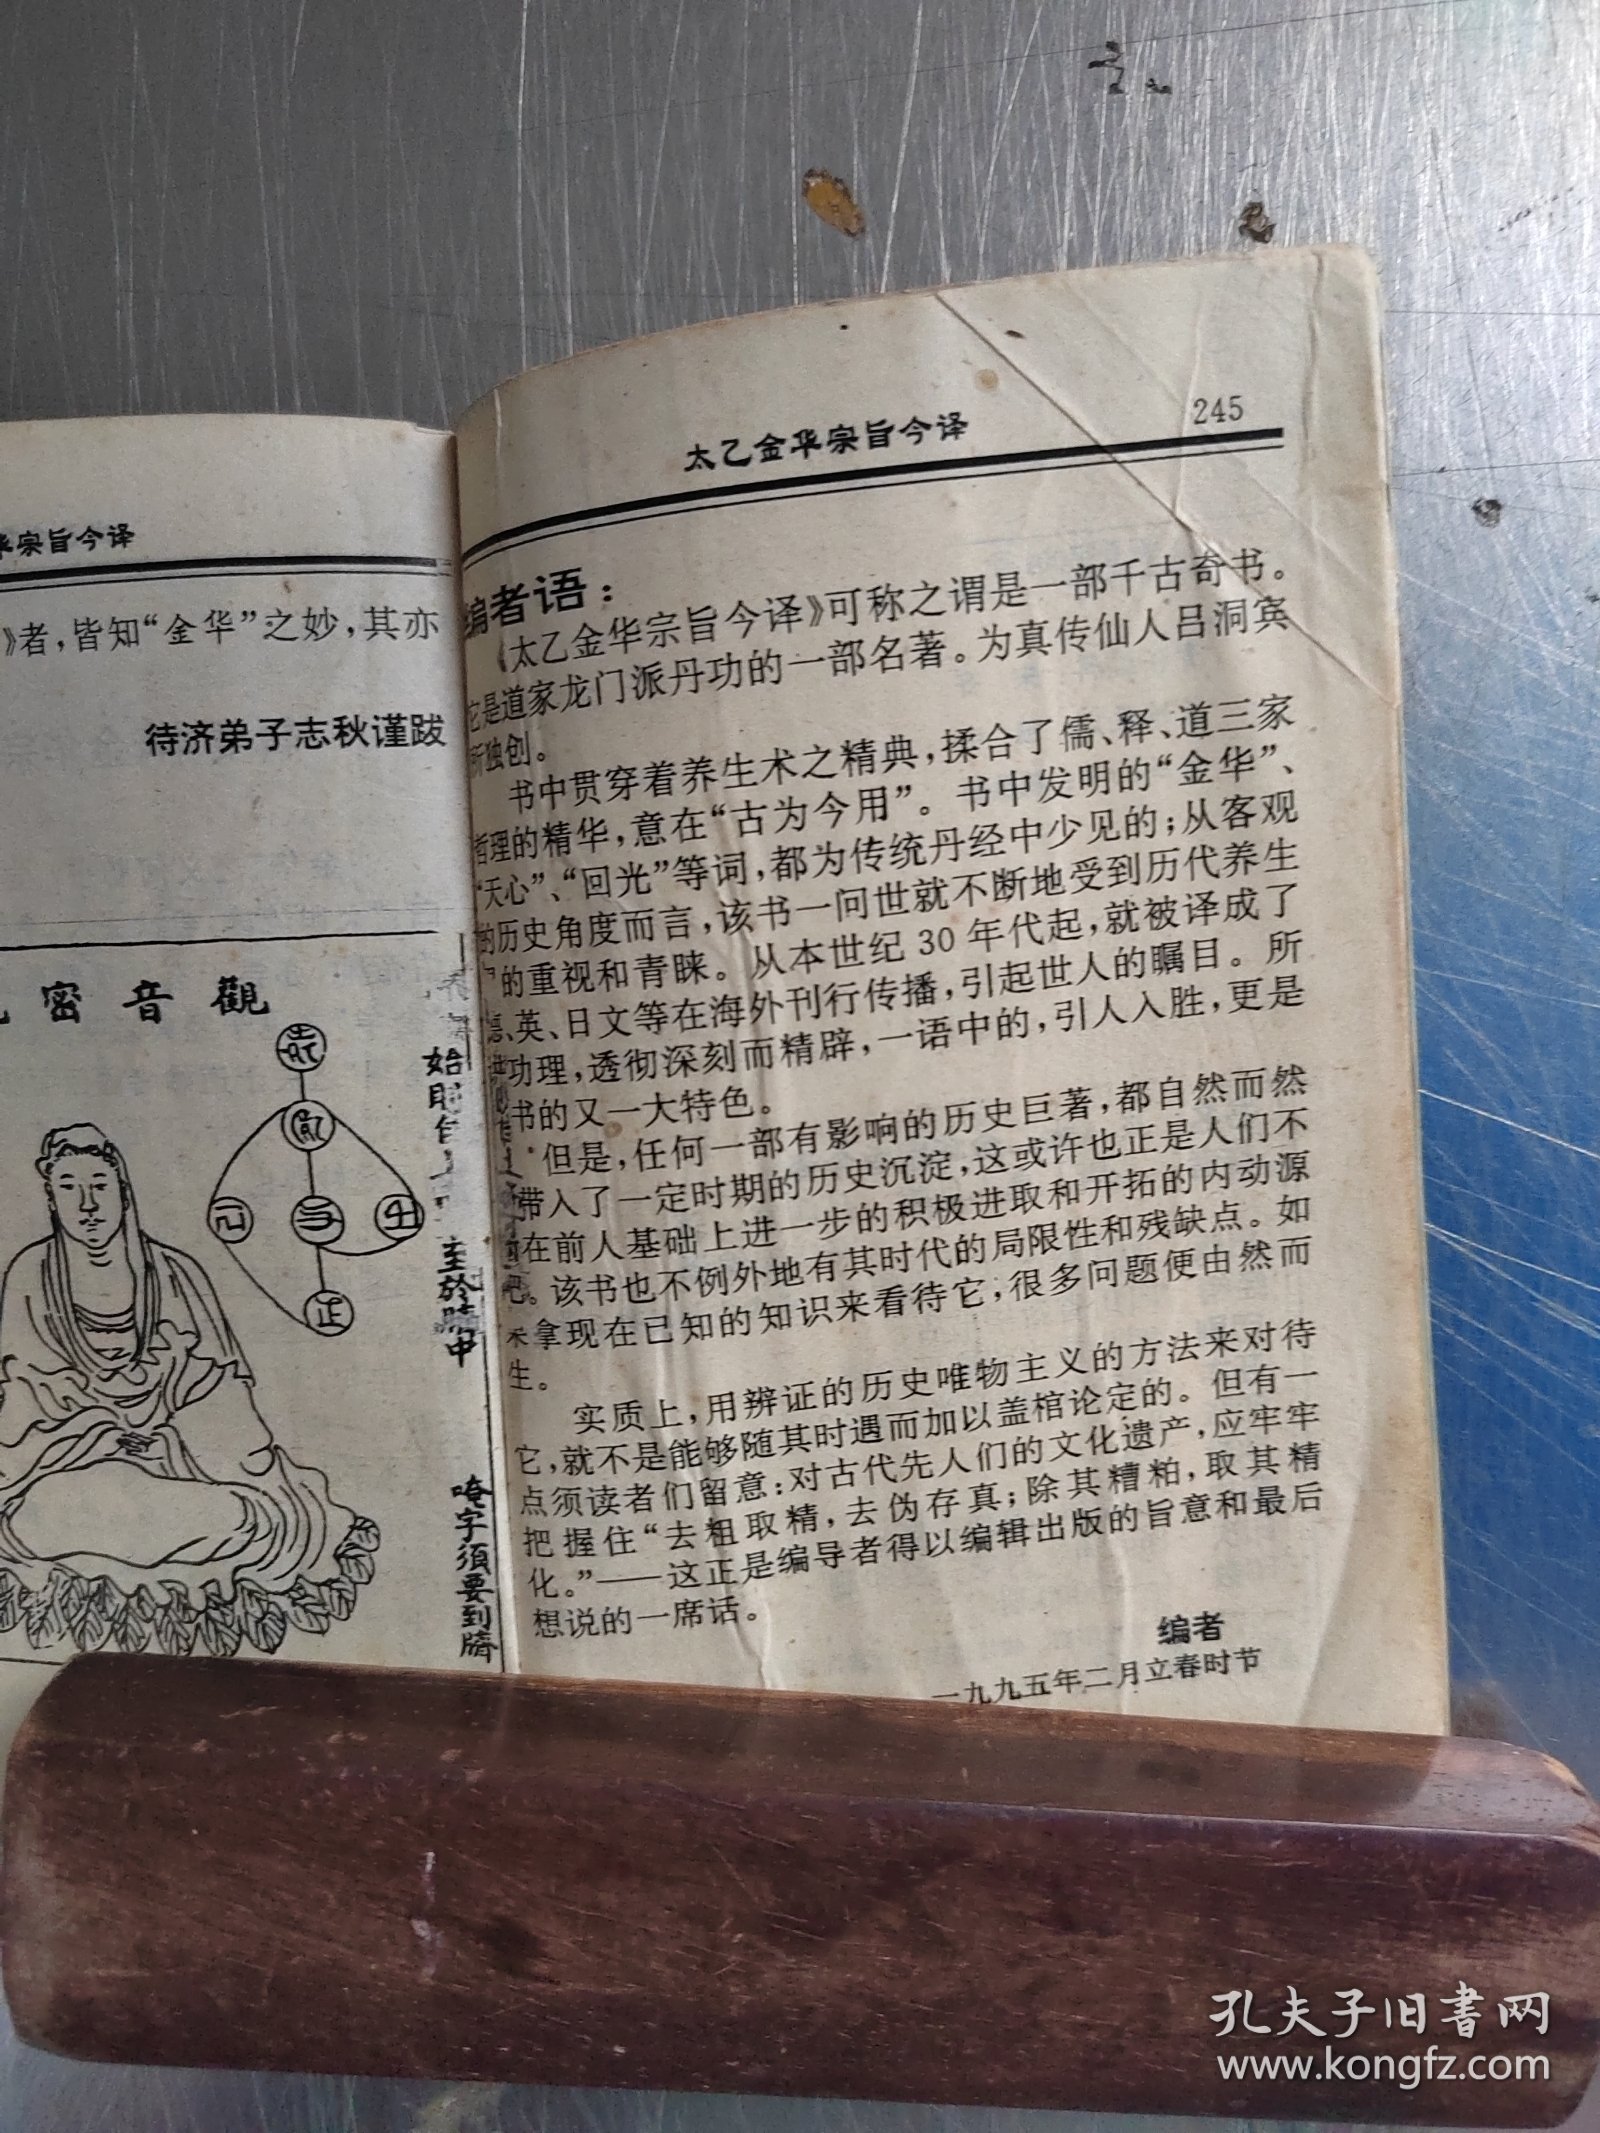 华宗旨今译
》者，皆知“金华”之妙，其亦
待济弟子志秋谨跋
密音觀
始
至於臍中
唵字須要到臍
245
太乙金华宗旨今译
编者语：
《太乙金华宗旨今译》可称之谓是一部千古奇书。
它是道家龙门派丹功的一部名著。为真传仙人吕洞宾
所独创。
书中贯穿着养生术之精典，揉合了儒、释、道三家
哲理的精华，意在“古为今用”。书中发明的“金华”、
“天心”、“回光”等词，都为传统丹经中少见的；从客观
的历史角度而言，该书一问世就不断地受到历代养生
的重视和青睐。从本世纪30年代起，就被译成了
德、英、日文等在海外刊行传播，引起世人的瞩目。所
讲功理，透彻深刻而精辟，一语中的，引人入胜，更是
书的又一大特色。
但是，任何一部有影响的历史巨著，都自然而然
带入了一定时期的历史沉淀，这或许也正是人们不
在前人基础上进一步的积极进取和开拓的内动源
吧。该书也不例外地有其时代的局限性和残缺点。如
果拿现在已知的知识来看待它，很多问题便由然而
生。
实质上，用辨证的历史唯物主义的方法来对待
它，就不是能够随其时遇而加以盖棺论定的。但有一
点须读者们留意：对古代先人们的文化遗产，应牢牢
把握住“去粗取精，去伪存真；除其糟粕，取其精
化。”——这正是编导者得以编辑出版的旨意和最后
想说的一席话。
编者
一九九五年二月立春时节
孔夫子旧書网
www.kongfz.com